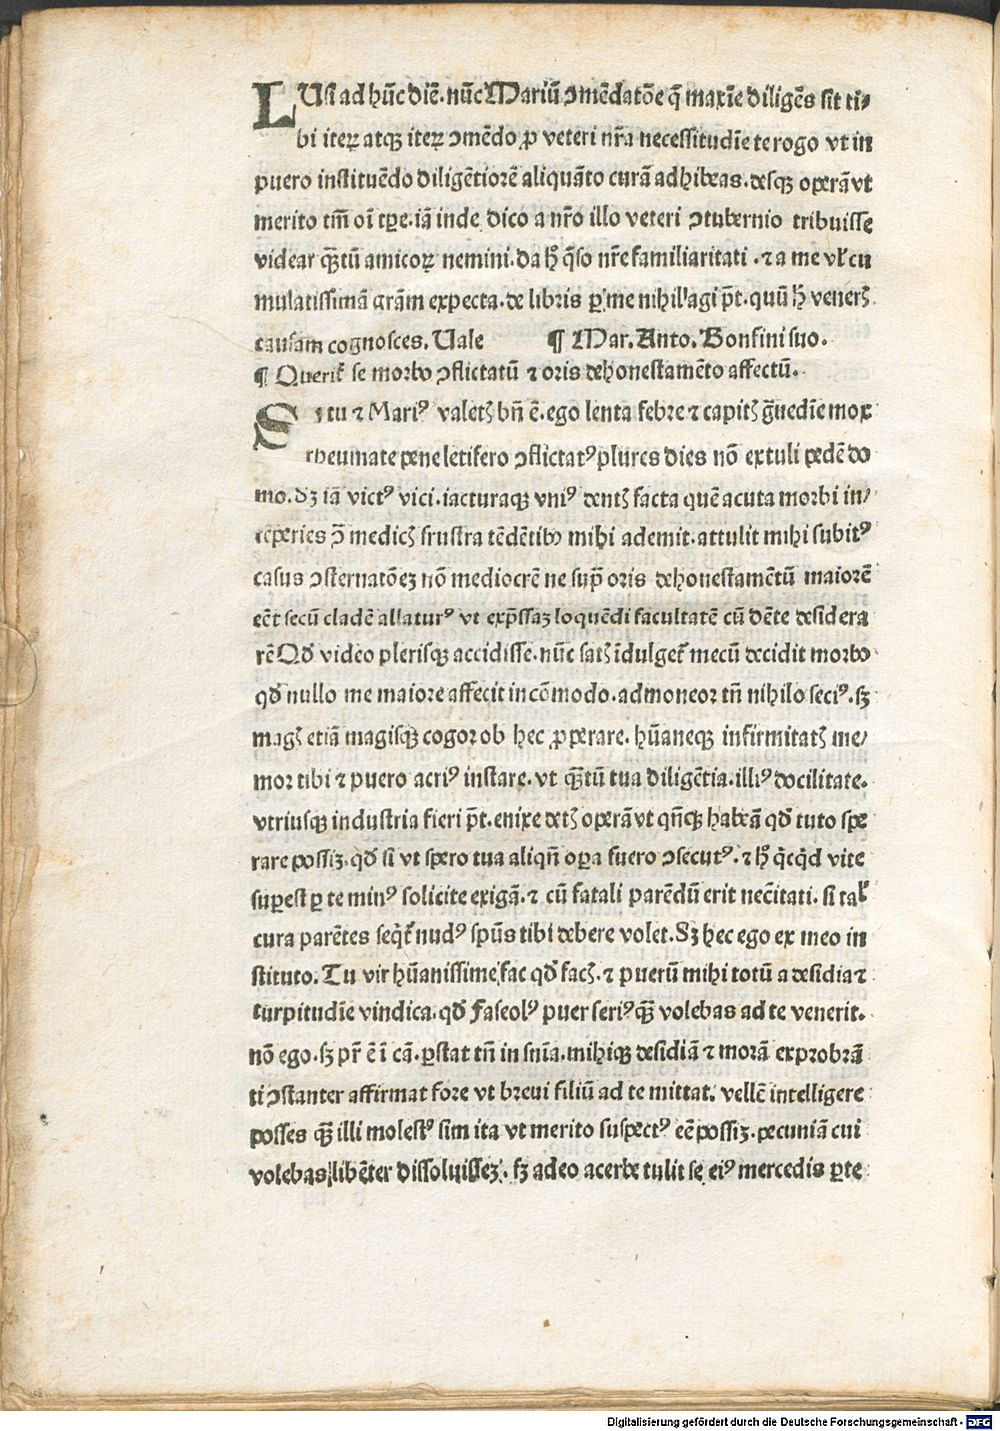 LUsi ad hūc diē. nūc Mariū ɔmēdatōe q̄ maxīe diligēs sit ti⸗
bi iteꝝ atqꝫ iteꝝ ɔmēdo ꝓ veteri nr̄a necessitudīe te rogo vt in
puero instituēdo diligētiorē aliquāto curā adhibeas. desqꝫ operā vt
merito tm̄ oī tꝑe. iā inde dico a nr̄o illo veteri ɔtubernio tribuisse
videar qꝫ̄tū amicoꝝ nemini. da hͦ q̄so nr̄e familiaritati. ⁊ a me vl̓ cu
mulatissimā grām expecta. de libris ꝑ me nihil agi pt̄. quū hͦ venerꝭ
causam cognosces. Uale ¶ Mar. Anto. Bonfini suo.
¶ Querit᷑ se morbo ɔflictatū ⁊ oris dehonestamēto affectū.
SI tu ⁊ Mariꝰ valetꝭ bn̄ ē. ego lenta febre ⁊ capitꝭ gͣuedīe mox
rheumate pene letifero ɔflictatꝰ plures dies nō extuli pedē do
mo. dꝫ iā victꝰ vici. iacturaqꝫ vniꝰ dentꝭ facta quē acuta morbi in⸗
teperies ꝓ̄ medicꝭ frustra tēdētibꝰ mihi ademit. attulit mihi subitꝰ
casus ɔsternatōeꝫ nō mediocrē ne supͣ oris dehonestamētū maiorē
eēt secū cladē allaturꝰ vt exp̄ssaꝫ loquēdi facultatē cū dēte desidera
rē Qd̓ video plerisqꝫ accidisse. nūc satꝭ īdulget᷑ mecū decidit morbo
qd̓ nullo me maiore affecit incōmodo. admoneor tn̄ nihilo seciꝰ. sꝫ
magꝭ etiā magisqꝫ cogor ob hec ꝓperare. hūaneqꝫ infirmitatꝭ me⸗
mor tibi ⁊ puero acriꝰ instare. vt qꝫ̄tū tua diligētia. illiꝰ docilitate.
vtriusqꝫ industria fieri pt̄. enixe detꝭ operā vt qn̄cqꝫ habeā qd̓ tuto spe
rare possiꝫ. qd̓ si vt spero tua aliqn̄ oꝑa fuero ɔsecutꝰ. ⁊ hͦ qͥcqͥd vite
suꝑest ꝑ te minꝰ solicite exigā. ⁊ cū fatali parēdū erit nec̄itati. si tal̓
cura parētes seqͥt᷑ nudꝰ spūs tibi debere volet. Sꝫ hec ego ex meo in
stituto. Tu vir hūanissime fac qd̓ facꝭ. ⁊ puerū mihi totū a desidia ⁊
turpitudīe vindica. qd̓ Faseolꝰ puer seriꝰ qꝫ̄ volebas ad te venerit.
nō ego. sꝫ pr̄ ē ī cā. ꝑstat tn̄ in snīa. mihiqꝫ desidiā ⁊ morā exprobrā
ti ɔstanter affirmat fore vt breui filiū ad te mittat. vellē intelligere
posses qꝫ̄ illi molestꝰ sim ita vt merito suspectꝰ eē possiꝫ. pecuniā cui
volebas libēter dissoluisseꝫ. sꝫ adeo acerbe tulit se eiꝰ mercedis ꝑ te
Digitalisierung gefördert durch die Deutsche Forschungsgemeinschaft - DFG